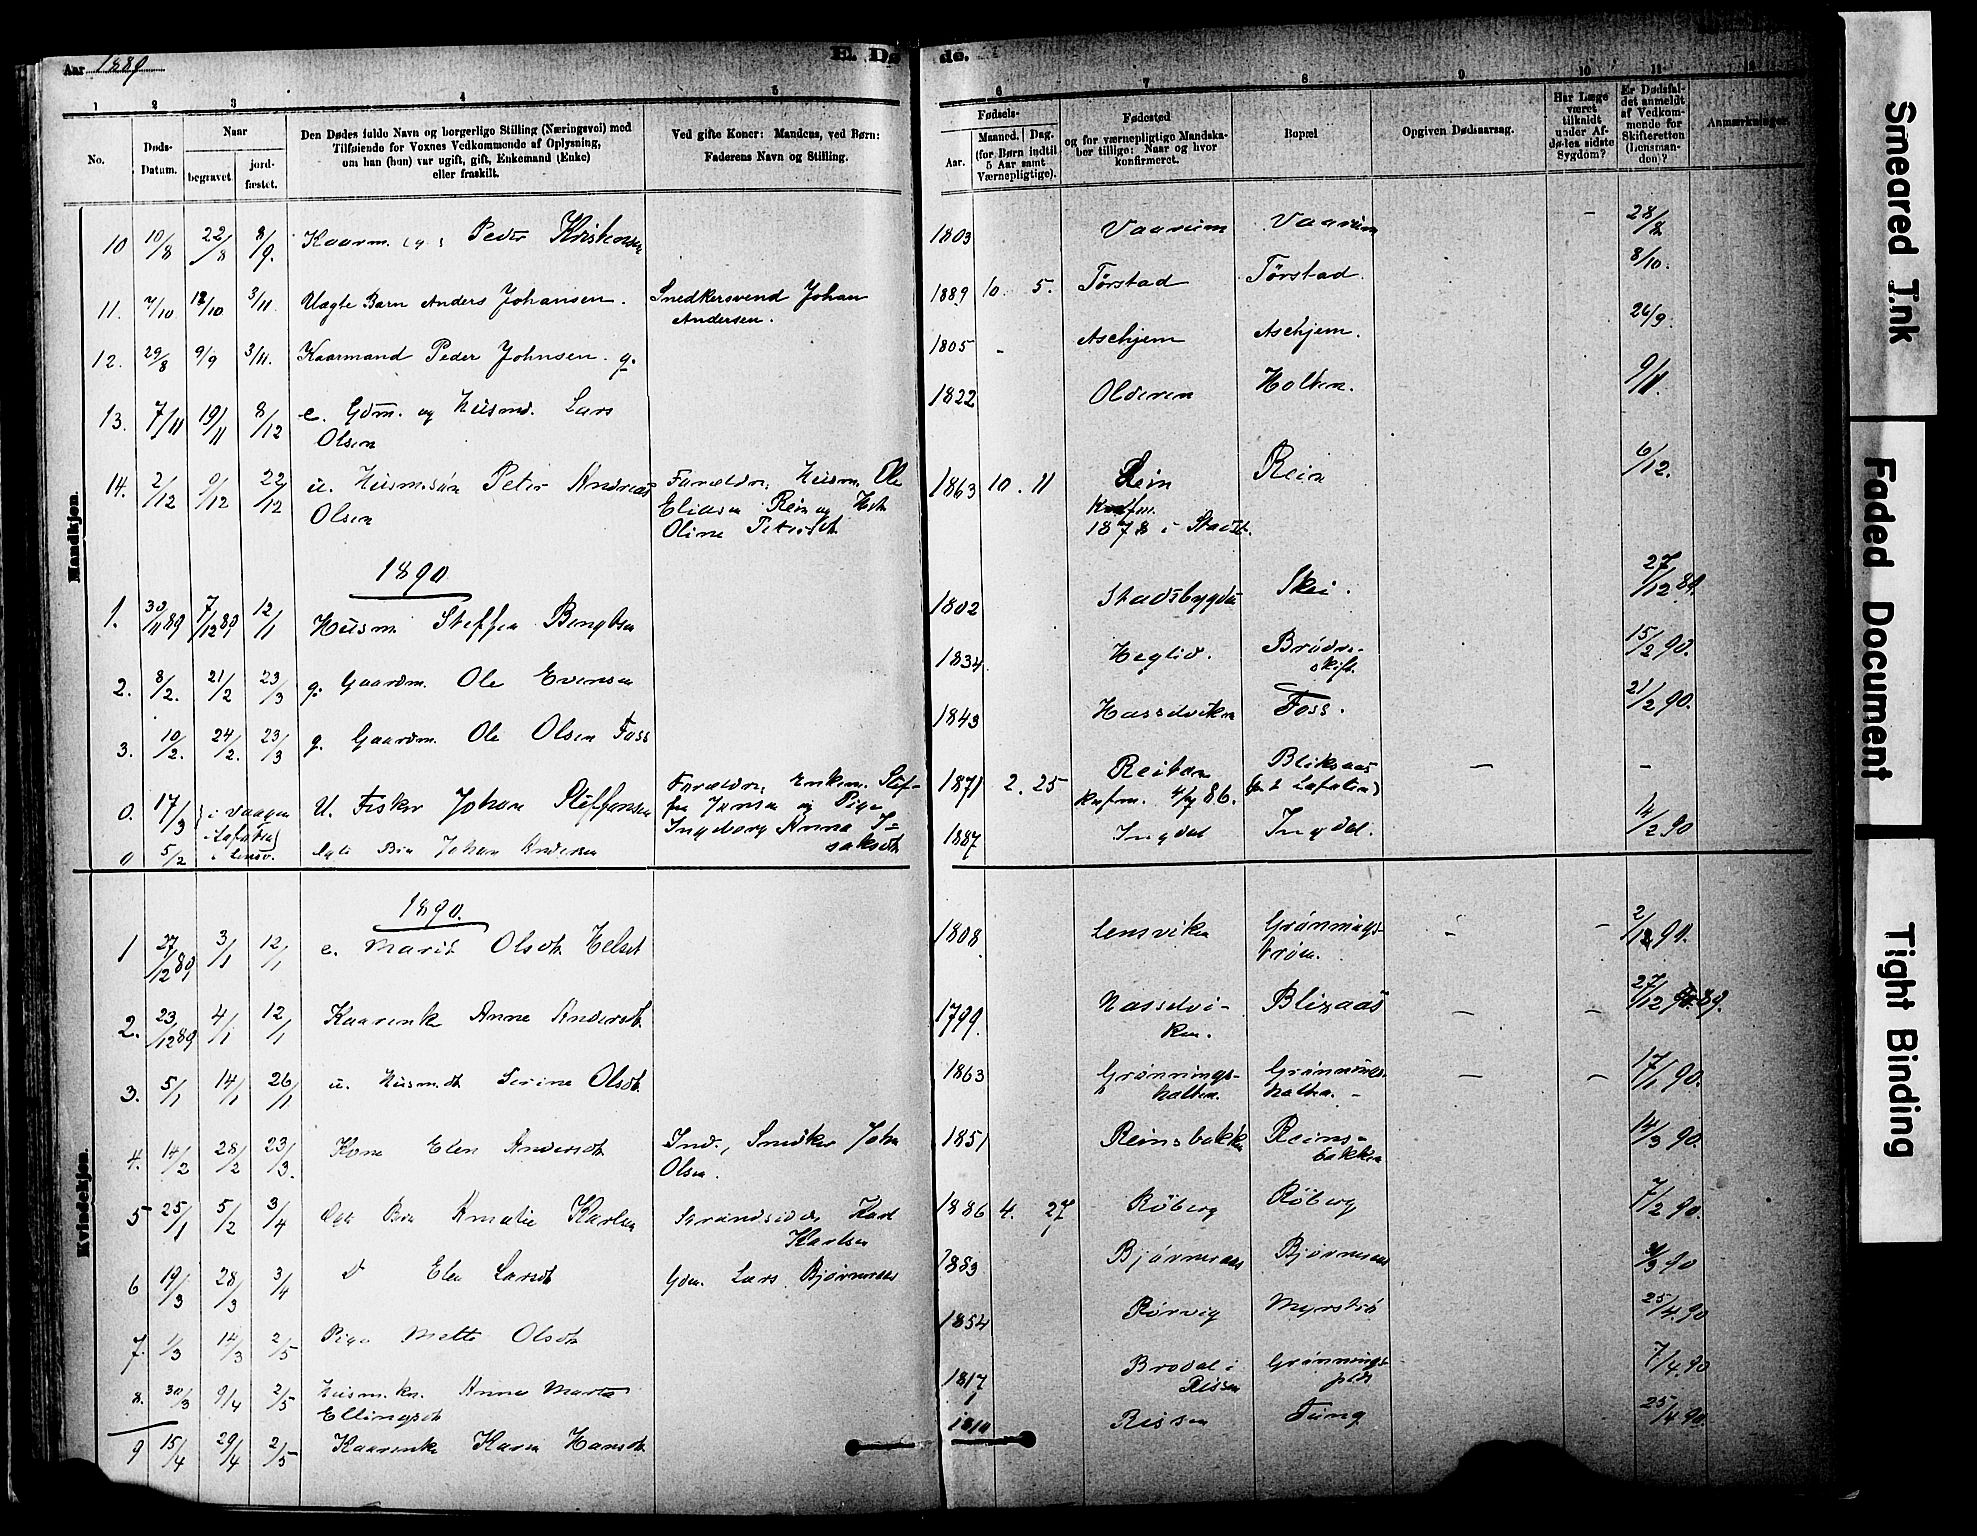 Aar 1889
E. Dø
de.
1 2 3 4 5
6 7 8 9 10 11 12
No.
Døds-Datum.
Naar
begravet.
jord-fæstet.
Den Dødes fulde Navn og borgerlige Stilling (Næringsvei) med
Tilføiende for Voxnes Vedkommende af Oplysning,
om han (hun) var ugift, gift, Enkemand (Enke)
eller fraskilt.
Ved gifte Koner: Mandens, ved Børn:
Faderens Navn og Stilling.
Fødsels-
Aar.
Maaned. Dag.
(for Børn indtil
5 Aar samt
Værnepligtige).
Fødested
og for værnepligtige Mandska-
ber tillige: Naar og hvor
konfirmeret.
Bopæl.
Opgiven Dødsaarsag.
Har Læge
været
tilkaldt
under Af-
dødes sidste
Sygdom?
Er Dødsfal-
det anmeldt
af Vedkom-
mende for
Skifteretten
(Lensman-
den)?
Anmærkninger.
Mandkjøn.
10 10/8 22/8 8/9 Kaarm. Peder Kristensen 1803 Vaarum Vaarum - 28/8
11. 7/10 12/10 3/11 Uægte Barn Anders Johansen. Snedkersvend Johan
Andersen. 1889 10. 5. Tørstad Tørstad. 8/10.
12. 29/8 9/9 3/11. Kaarmand Peder Johnsen. g. 1805 - Aschjem Aschjem. 26/9.
13. 7/11 19/11 8/12 e. Gdm. og Husmd. Lars
Olsen 1822 Olderen Holten. 9/11.
14. 2/12 9/12 22/12 u. Husm.søn Peter Andreas
Olsen Forældre: Husm. Ole
Eliasen Rein og Hst.
Oline Petersdt. 1863 10. 11 Rein Rein 6/12.
Knfm.
1878 i Stadsb.
1890
1. 30/11 89 7/12 89 12/1 Husm. Steffen Bengtsen 1802 Stadsbygden Skei. 27/12 89
2. 8/2. 21/2 23/3 g. Gaardm. Ole Evensen 1834. Heglid. Brødre-
skift. 15/2 90.
3. 10/2. 24/2. 23/3 g. Gaardm. Ole Olsen Foss 1843 Hasselviken Foss. 21/2 90.
0. 17/3 i Vaagen
i Lofoten U. Fisker Johan Steffensen Forældre: Enkem. Stef-
fen Jensen og Pige
Ingeborg Anna I-
saksdt. 1871 2. 25 Reitan Bliksaas — -
knfm. 4/7 86. Lofoten)
0 5/2 i Lensv. Barn Johan Andersen 1887 Ingdal Ingdal. 14/2 90
Kvindekjøn.
1890.
1 27/12 89 3/1 12/1 e. Marit Olsdt. Helset 1808. Lensviken Grønnings-
trøen. - - 2/12 90.
2. 23/12 89 4/1 12/1 Kaarenke Anne Andersdt. 1799. Hasselvi-
ken. Blixaas - - 27/12 89.
3. 5/1 14/1 26/1 u. Husm.dt. Serine Olsdt. 1863 Grønnings-
halten. Grønnings-
halten. - - 17/1 90.
4. 14/2 28/2 23/3. Kone Elen Andersdt. Ind., Snedker John
Olsen. 1851 Reinsbakken Reins-
bakken 14/3 90.
5 25/1 5/2 3/4 Barn Amalie Karlsen Strandsidder Karl
Karlsen 1886 4. 27 Røberg Røberg 7/2 90.
6 19/3 28/3 3/4 d Elen Larsdt. Gdm. Lars Bjørneraas 1883 Bjørneraas Bjørneraas 90
7. 1/3 14/3 2/5 Pige Mette Olsdt. 1854 Rørvig Myrstrø 25/4. 90
8. 30/3 9/4 2/5 Husm.kn. Anne Marta
Ellingsdt. 1817 Brodal i
Rissen Grønnings-
plds 7/4. 90
9 15/4 29/4 2/5 Kaarenke Karen Hansdt. Rissen Tung 25/4 90.
Smeared Ink
Faded Document
Tight Binding